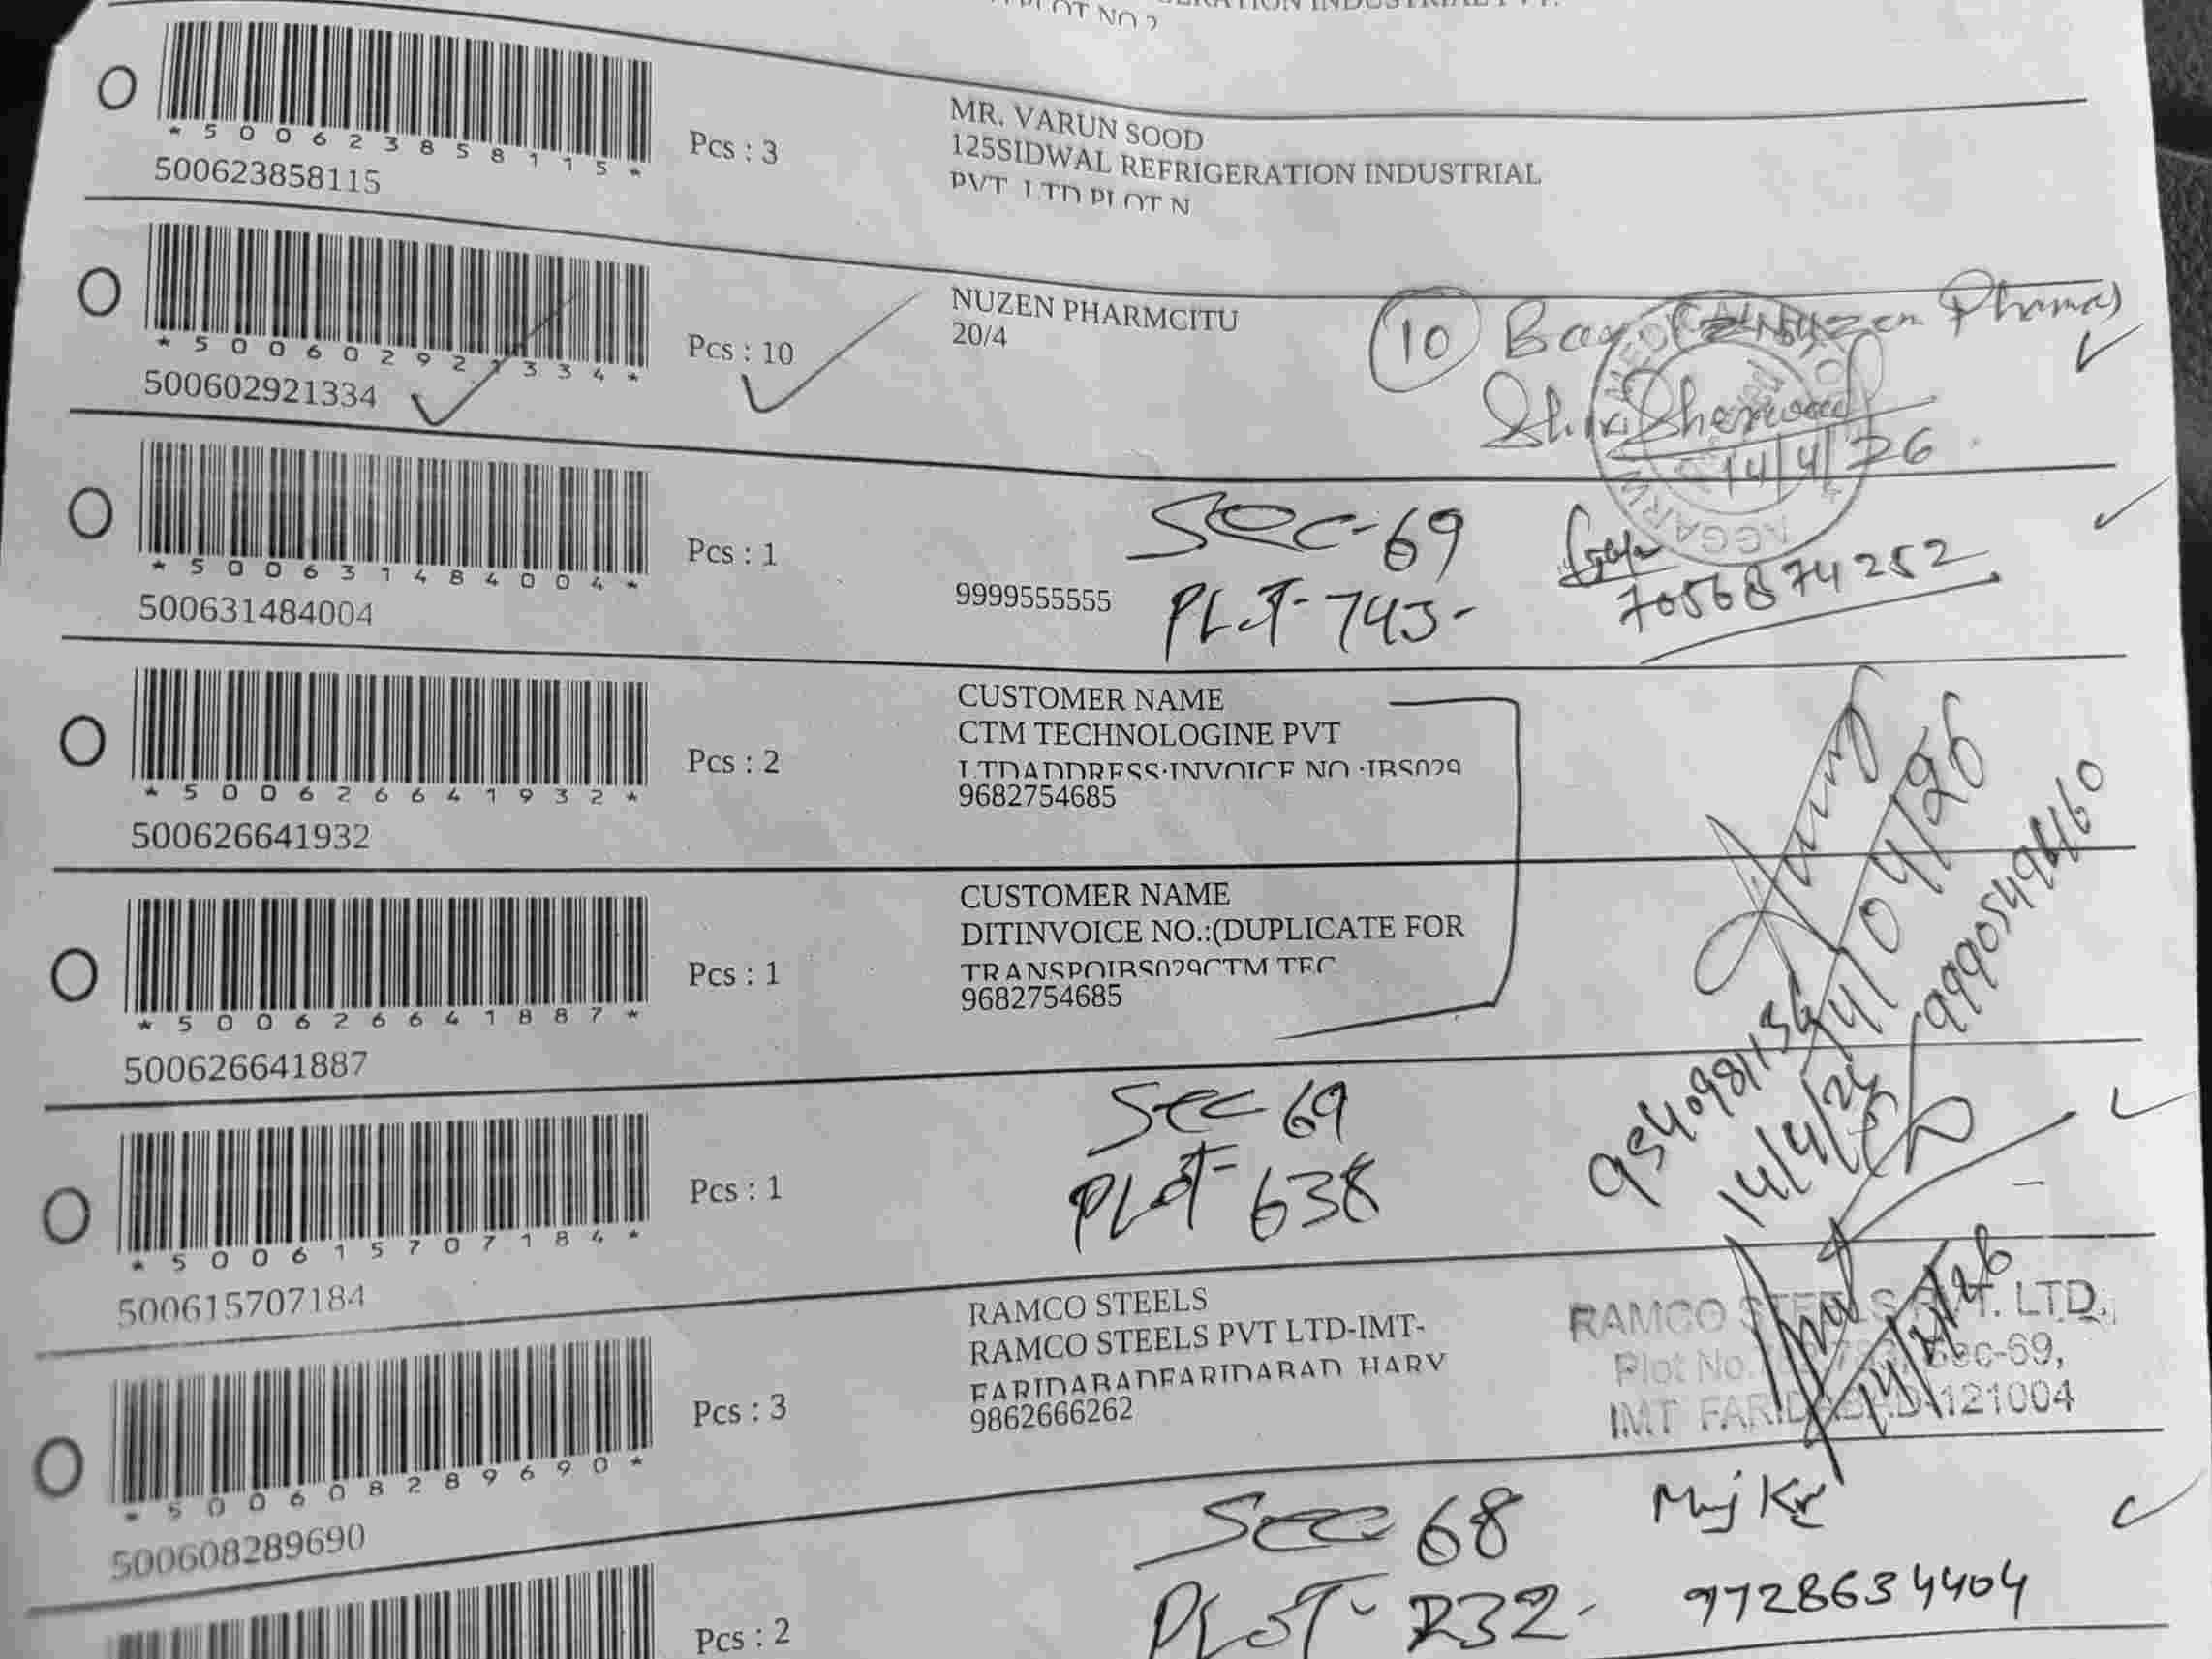 PLOT NO 2
*500623858115*
500623858115
Pcs : 3
MR. VARUN SOOD
125SIDWAL REFRIGERATION INDUSTRIAL
PVT. LTD PLOT N
*500602921334*
500602921334
Pcs : 10
NUZEN PHARMCITU
20/4
10 Box Nuzen Pharma
14/4/26
*500631484004*
500631484004
Pcs : 1
9999555555
SEC-69
PLOT-743-
7056874252
*500626641932*
500626641932
Pcs : 2
CUSTOMER NAME
CTM TECHNOLOGINE PVT
LTDADDRESS:INVOICE NO.:IBS029
9682754685
14/04/26
*500626641887*
500626641887
Pcs : 1
CUSTOMER NAME
DITINVOICE NO.:(DUPLICATE FOR
TRANSPOIBS029CTM TEC
9682754685
*500615707184*
500615707184
Pcs : 1
SEC 69
PLOT- 638
14/4/26
*500608289690*
500608289690
Pcs : 3
RAMCO STEELS
RAMCO STEELS PVT LTD-IMT-
FARIDABADFARIDABAD HARY
9862666262
RAMCO STEELS PVT. LTD.
Plot No. Sec-69,
IMT FARIDABAD-121004
14/4/26
Pcs : 2
SEC 68
PLOT- 232-
9728634404